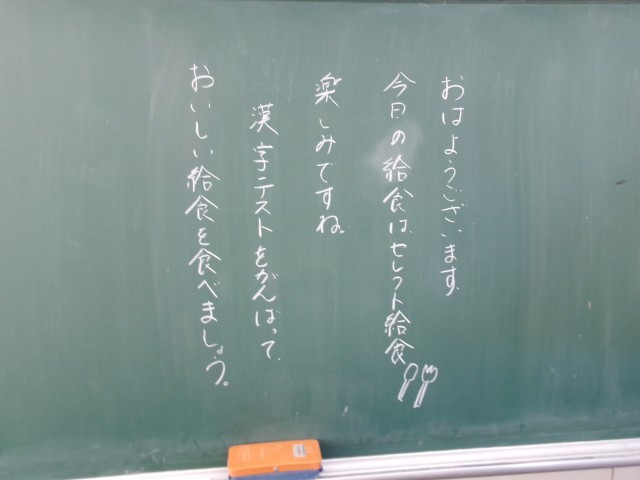 おはようございます。
今日の給食は、セレクト給食
楽しみですね。
漢字テストをがんばって、
おいしい給食を食べましょう。